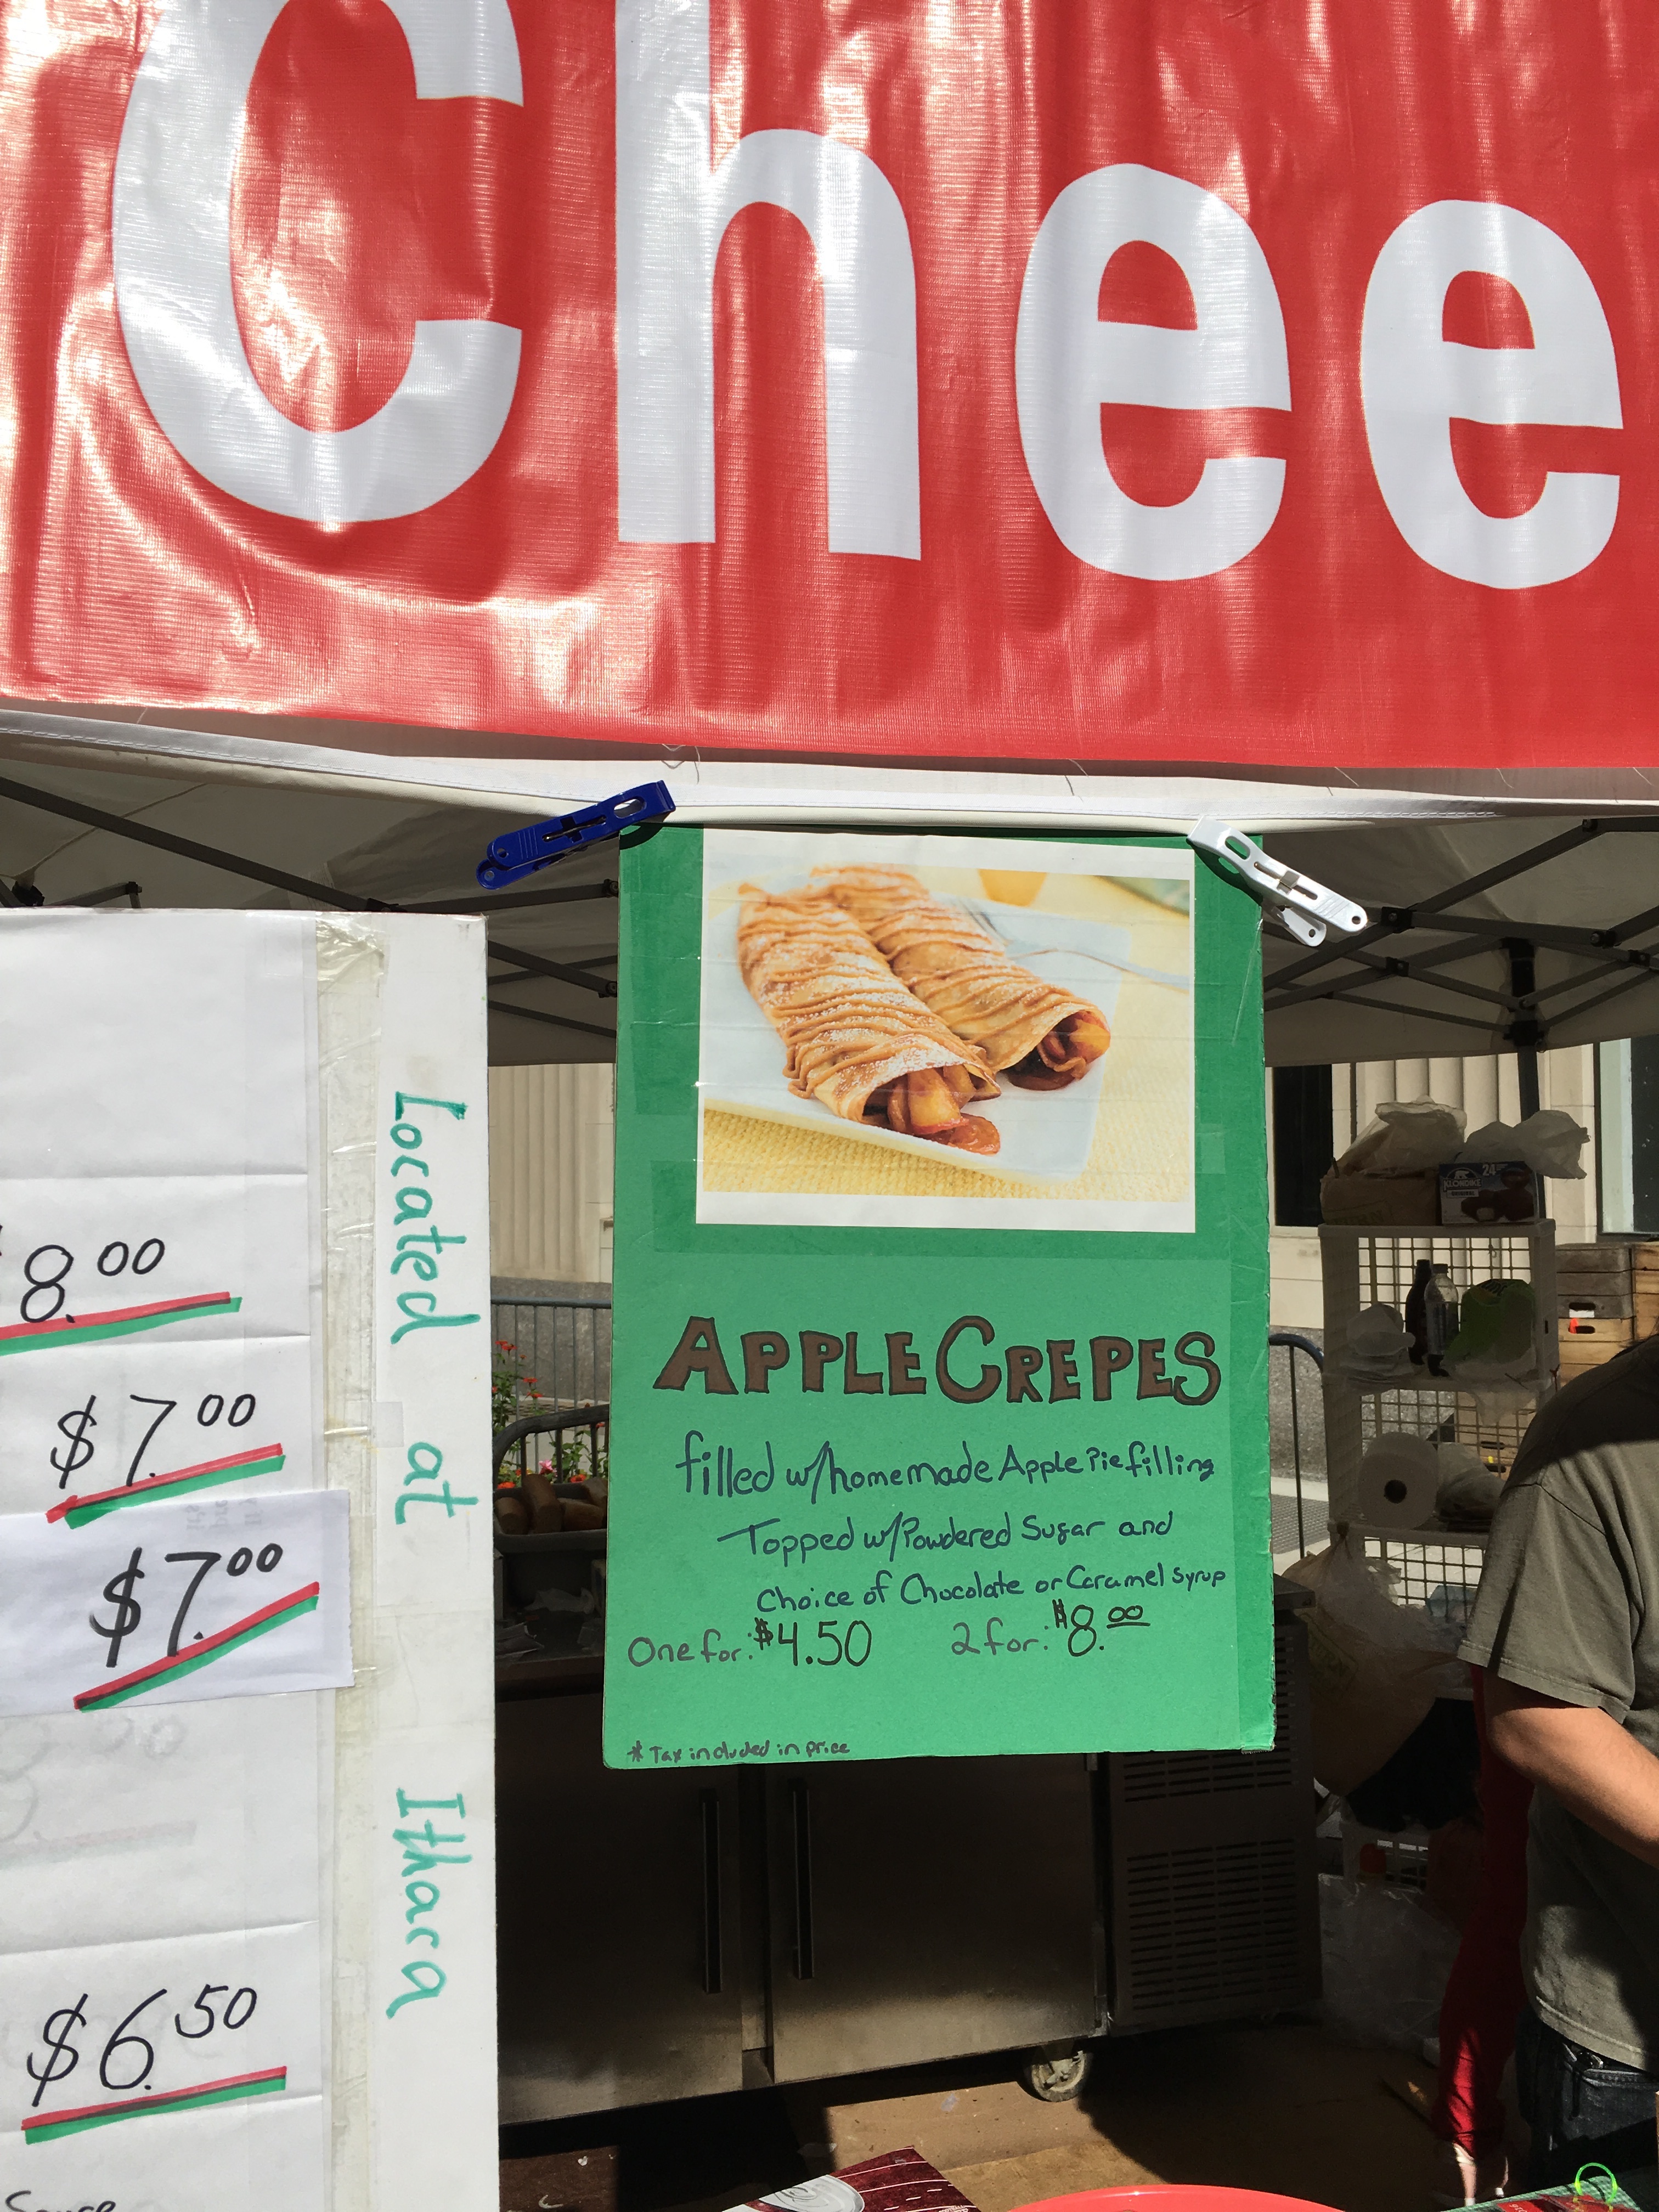 Chee
8.00
$7.00
$7.00
$6.50
Located at Ithaca
APPLE CREPES
filled w/homemade Apple Pie filling
Topped w/Powdered Sugar and
Choice of Chocolate or Caramel Syrup
One for: $4.50 2 for: $8.00
* Tax included in price
24
KLONDIKE
ORIGINAL